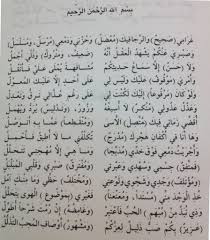 بسم الله الرحمن الرحيم
غرامي (صحيح) والرجا فيك (معضل) وحزني ودمعي (مرسل، ومسلسل)
وصبري عنكم يشهد العقل أنه (ضعيف، ومتروك) وذلي أجمل
ولا (حسن) إلا سماع حديثكم مشافهة يملى علي فأنقل
وأمري (موقوف) عليك وليس لي على أحد إلا عليك المعول
ولو كان (مرفوعا) إليك لكنت لي على رغم عذالي ترق وتعدل
وعذل عذولي (منكر) لا أسيغه وزور، و(تدليس) يرد ويهمل
أقضي زماني فيك (متصل) الأسى و(منقطعا) عما به أتوصل
وها أنا في أكفان هجرك (مدرج) تكلفني ما لا أطيق فأحمل
وأجريت دمعي فوق خدي (مدبجا) وما هي إلا مهجتي تتحلل
(فمتفق) جسمي وسهدي وعبرتي (ومفترق) صبري وقلبي المبلبل
(ومؤتلف) وجدي وشجوي ولوعتي (ومختلف) حظي وما فيك آمل
خذ الوجد مني (مسندا، ومعنعنا) فغيري (بموضوع) الهوى يتحلل
وذي نبذ من (مبهم) الحب فاعتبر (وغامضه) إن رمت شرحا أطول
بكم صب ذليل (ومشهور) أوصاف المحب التذلل